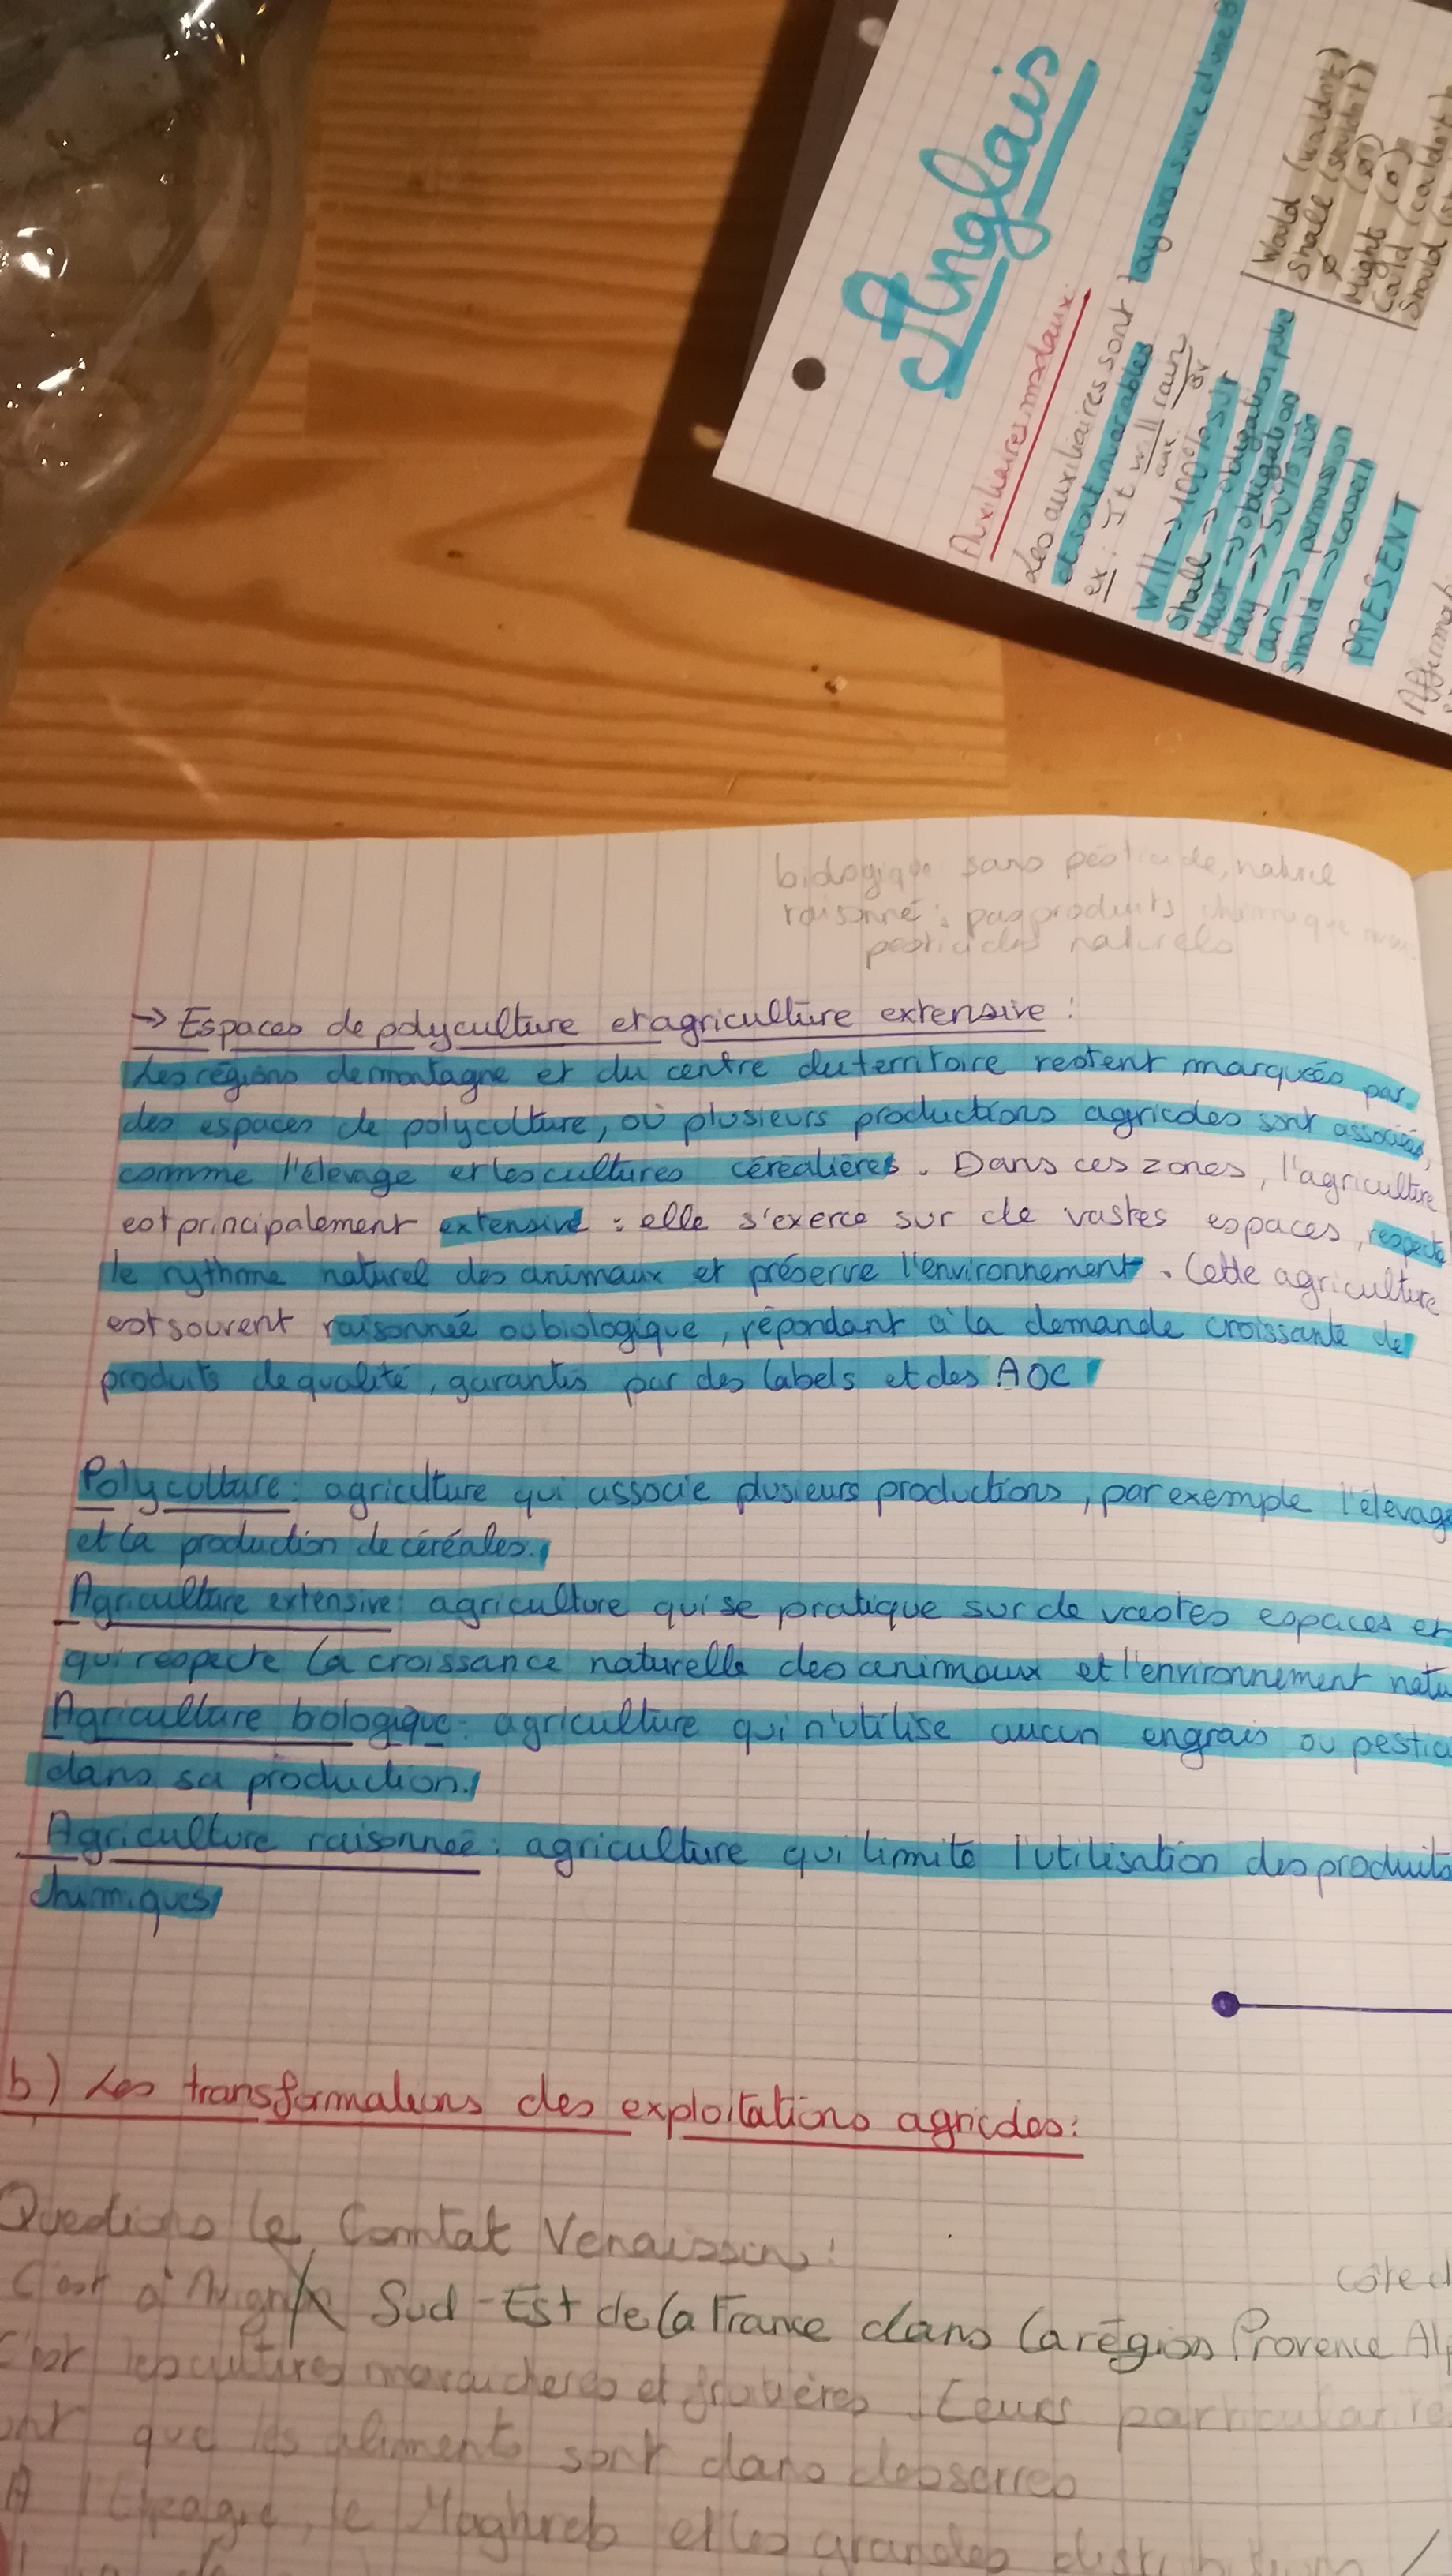 Anglais
Auxiliaires modaux:
Les auxiliaires sont toujours suivi d'une B
et sont invariables
ex: It will rain
aux. BV
Will -> 100% sûr
Shall -> obligation
Must -> obligation
May -> 50% sûr
Can -> permission
Should -> conseil
PRESENT
Would (wouldn't)
Shall (shouldn't)
Ø
Might (Ø)
Could (couldn't)
Should
biologique sans pesticide, naturel
raisonné: pas produits chimique
pesticides naturels
-> Espaces de polyculture et agriculture extensive :
Les régions de montagne et du centre du territoire restent marquées par
des espaces de polyculture, où plusieurs productions agricoles sont associées,
comme l'élevage et les cultures céréalières. Dans ces zones, l'agriculture
est principalement extensive : elle s'exerce sur de vastes espaces, respecte
le rythme naturel des animaux et préserve l'environnement. Cette agriculture
est souvent raisonnée ou biologique, répondant à la demande croissante de
produits de qualité, garantis par des labels et des AOC
Polyculture: agriculture qui associe plusieurs productions, par exemple l'élevage
et la production de céréales.
Agriculture extensive: agriculture qui se pratique sur de vastes espaces et
qui respecte la croissance naturelle des animaux et l'environnement natu
Agriculture bologique: agriculture qui n'utilise aucun engrais ou pestic
dans sa production.
Agriculture raisonnée: agriculture qui limite l'utilisation des produits
chimiques
b) Les transformations des exploitations agricoles:
Questions le Comtat Venaissin:
Côte d
C'est à Sud-Est de la France dans la région Provence Alp
C'est les cultures maraichères et fruitières. Leurs particularité
ont que les aliments sont dans des serres
A l'Espagne, le Maghreb et les grandes